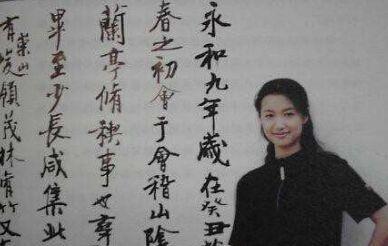 永和九年歲在癸丑
春之初會于會稽山陰
蘭亭脩稧事也羣
畢至少長咸集此
崇山
有峻領茂林脩竹又